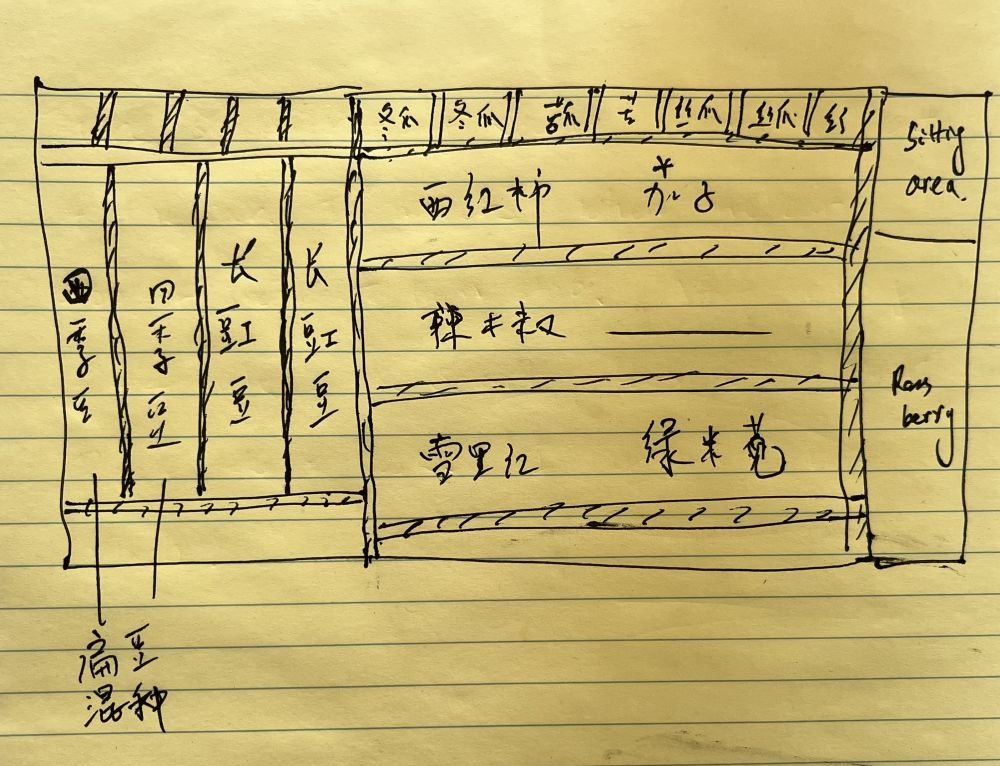 冬瓜 冬瓜 苦瓜 苦 丝瓜 丝瓜 丝
Sitting area
西红柿 茄子
四季豆
四季豆
长豇豆
长豇豆
辣椒
雪里红 绿米苋
Rasberry
扁豆
混种